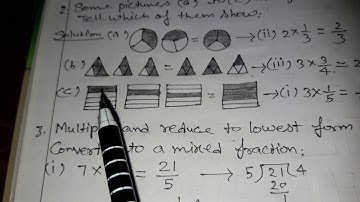 2. Some pictures (a)
Tell which of them show:
Solution (a) = → (ii) 2 × 1/3 = 2/3
(b) = → (iii) 3 × 3/4 = 2
(c) = → (i) 3 × 1/5 =
3. Multiply and reduce to lowest form
Convert to a mixed fraction:
(i) 7 × = 21/5 → 5)21(4
20